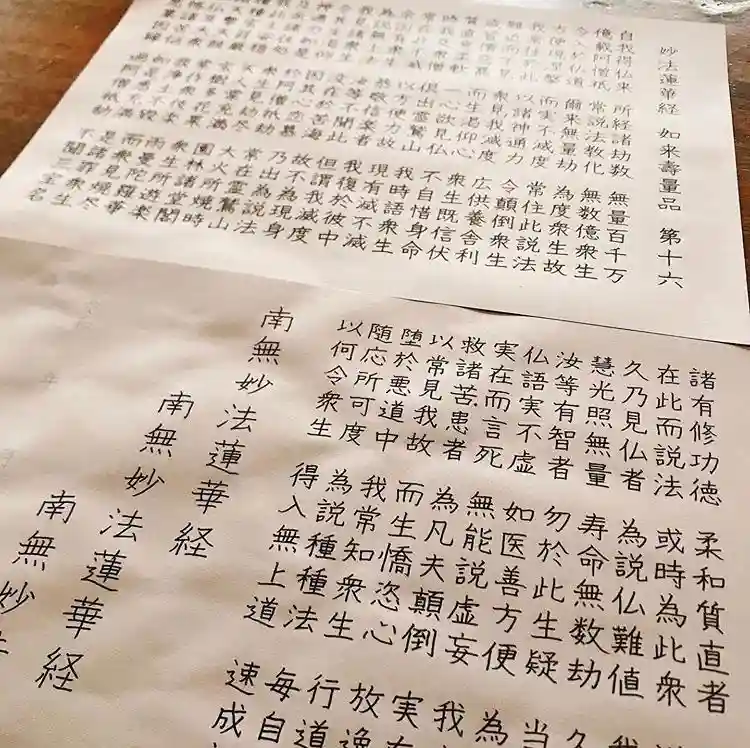 妙法蓮華経 如来壽量品 第十六
自我得仏来 所経諸劫数 無量百千万
億載阿僧祇 常説法教化 無数億衆生
令入於仏道 爾来無量劫 為度衆生故
方便現涅槃 而実不滅度 常住此説法
我常住於此 以諸神通力 令顛倒衆生
雖近而不見 衆見我滅度 広供養舎利
而生渇仰心 衆生既信伏
質直意柔軟 一心欲見仏 不自惜身命
時我及衆僧 倶出霊鷲山 我時語衆生
常在此不滅 以方便力故 現有滅不滅
余国有衆生 恭敬信楽者 我復於彼中
為説無上法 汝等不聞此 但謂我滅度
我見諸衆生 没在於苦海 故不為現身
因其心恋慕 乃出為説法
神通力如是 於阿僧祇劫 常在霊鷲山
衆生見劫尽 大火所焼時
天人常充満 園林諸堂閣
宝樹多花果 衆生所遊楽
常作衆伎楽 雨曼陀羅華
而衆見焼尽
是諸罪衆生
過阿僧祇劫 不聞三宝名
諸有修功徳 柔和質直者
在此而説法 或時為此衆
久乃見仏者 為説仏難値 我
慧光照無量 寿命無数劫 久
汝等有智者 勿於此生疑 当
仏語実不虚 如医善方便 為
実在而言死 無能説虚妄 我
救諸苦患者 為凡夫顛倒 実
以常見我故 而生憍恣心 放逸
堕於悪道中 我常知衆生 行道
随応所可度 為説種種法 毎自
以何令衆生 得入無上道 速成
南無妙法蓮華経
南無妙法蓮華経
南無妙